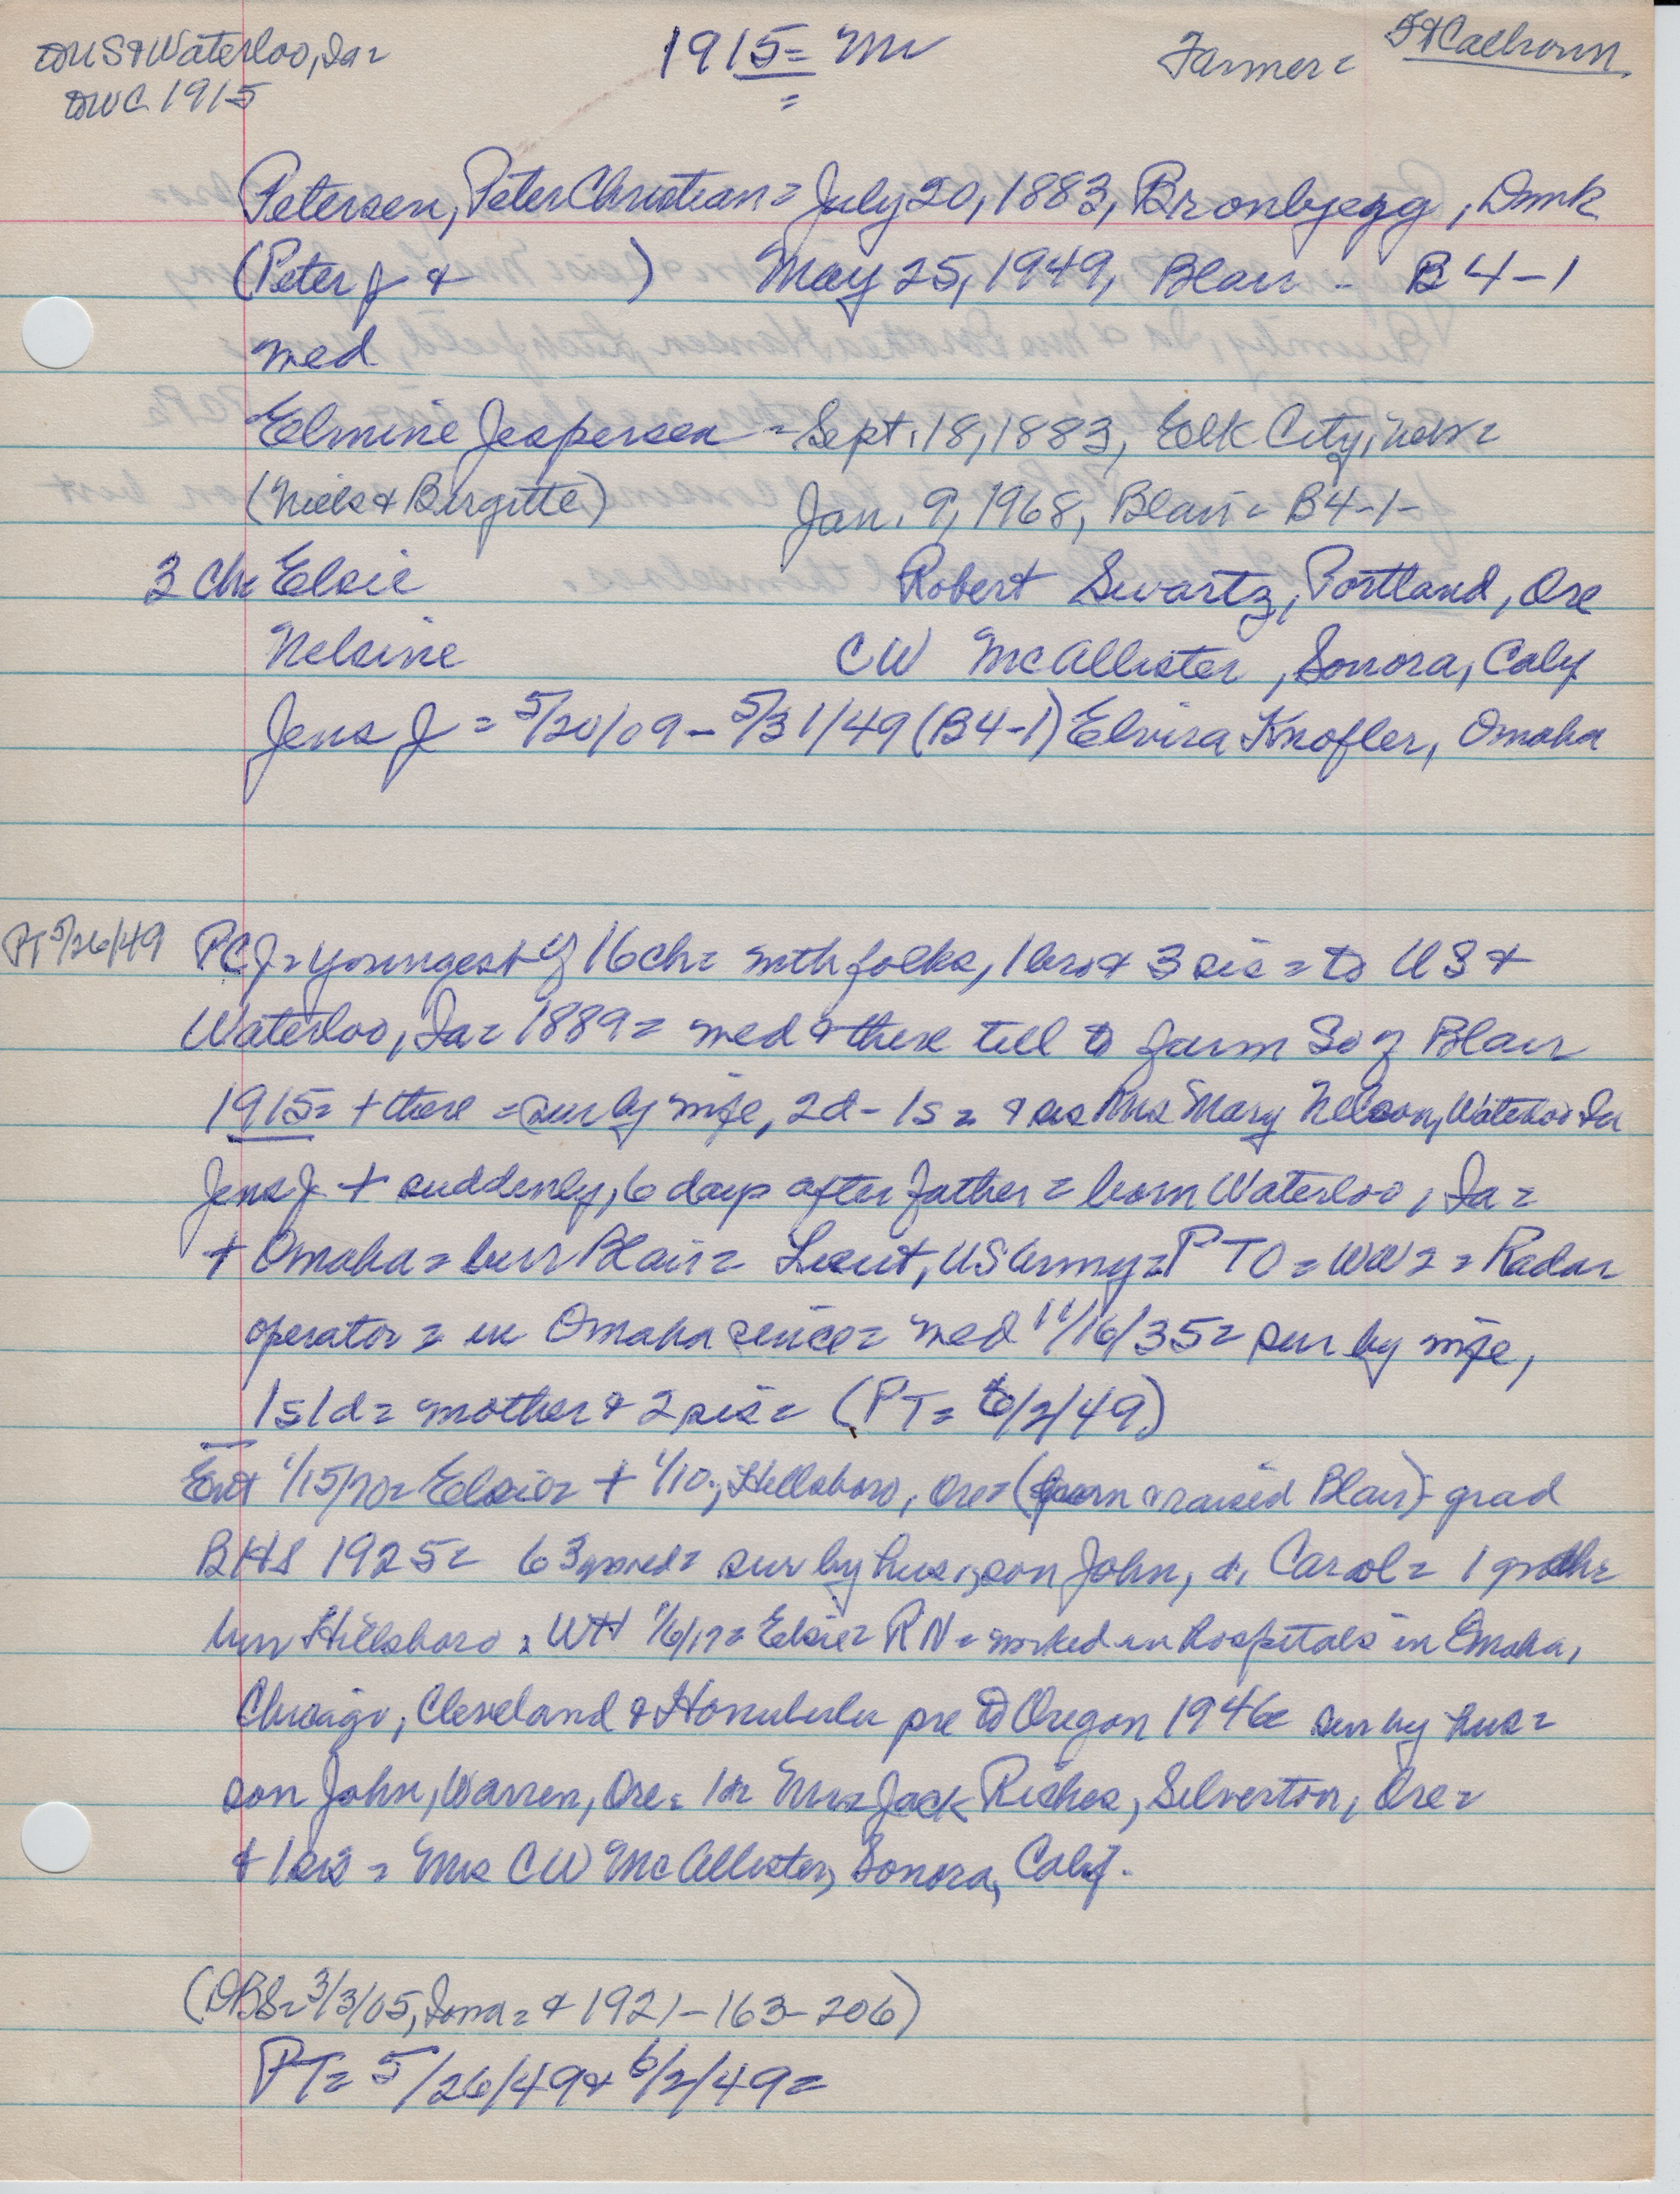 to US & Waterloo, Ia =
to WC 1915
1915 = Mr
Farmer =
Ft Calhoun
Petersen, Peter Christian = July 20, 1883, Bronbyegg, Dmk
(Peter J & ) May 25, 1949, Blair - B4-1
med
Elmine Jespersen = Sept. 18, 1883, Elk City, Nebr =
(Niels & Birgitte) Jan. 9, 1968, Blair = B4-1-
3 ch = Elsie Robert Swartz, Portland, Ore
Nelsine CW McAllister, Sonora, Calif
Jens J = 5/20/09 - 5/31/49 (B4-1) Elvira Knofler, Omaha
PT 5/26/49 PCJ = youngest of 16 ch = with folks, 1 bro & 3 sis = to US &
Waterloo, Ia = 1889 = med & there till to farm So of Blair
1915 = + there = sur by wife, 2d - 1s = & sis Mrs Mary Nelson, Waterloo Ia
Jens J + suddenly, 6 days after father = born Waterloo, Ia =
+ Omaha = bur Blair = Lieut, US Army = PTO = WW2 = Radar
operator = in Omaha since = med 11/16/35 = sur by wife,
1s 1d = mother & 2 sis = (PT = 6/2/49)
Ent 1/15/70 = Elsie = + 1/10, Hillsboro, Ore = (born & raised Blair) - grad
BHS 1925 = 63 yrs old = sur by hus, son John, d, Carol = 1 grdch =
bur Hillsboro = WH = Elsie = RN = worked in hospitals in Omaha,
Chicago, Cleveland & Honululu pre to Oregon 1946 = sur by hus =
son John, Warren, Ore = 1d = Mrs Jack Riches, Silverton, Ore =
& 1 sis = Mrs CW McAllister, Sonora, Calif.
(DBS = 3/3/05, Iowa = & 1921 - 163 - 206)
PT = 5/26/49 & 6/2/49 =